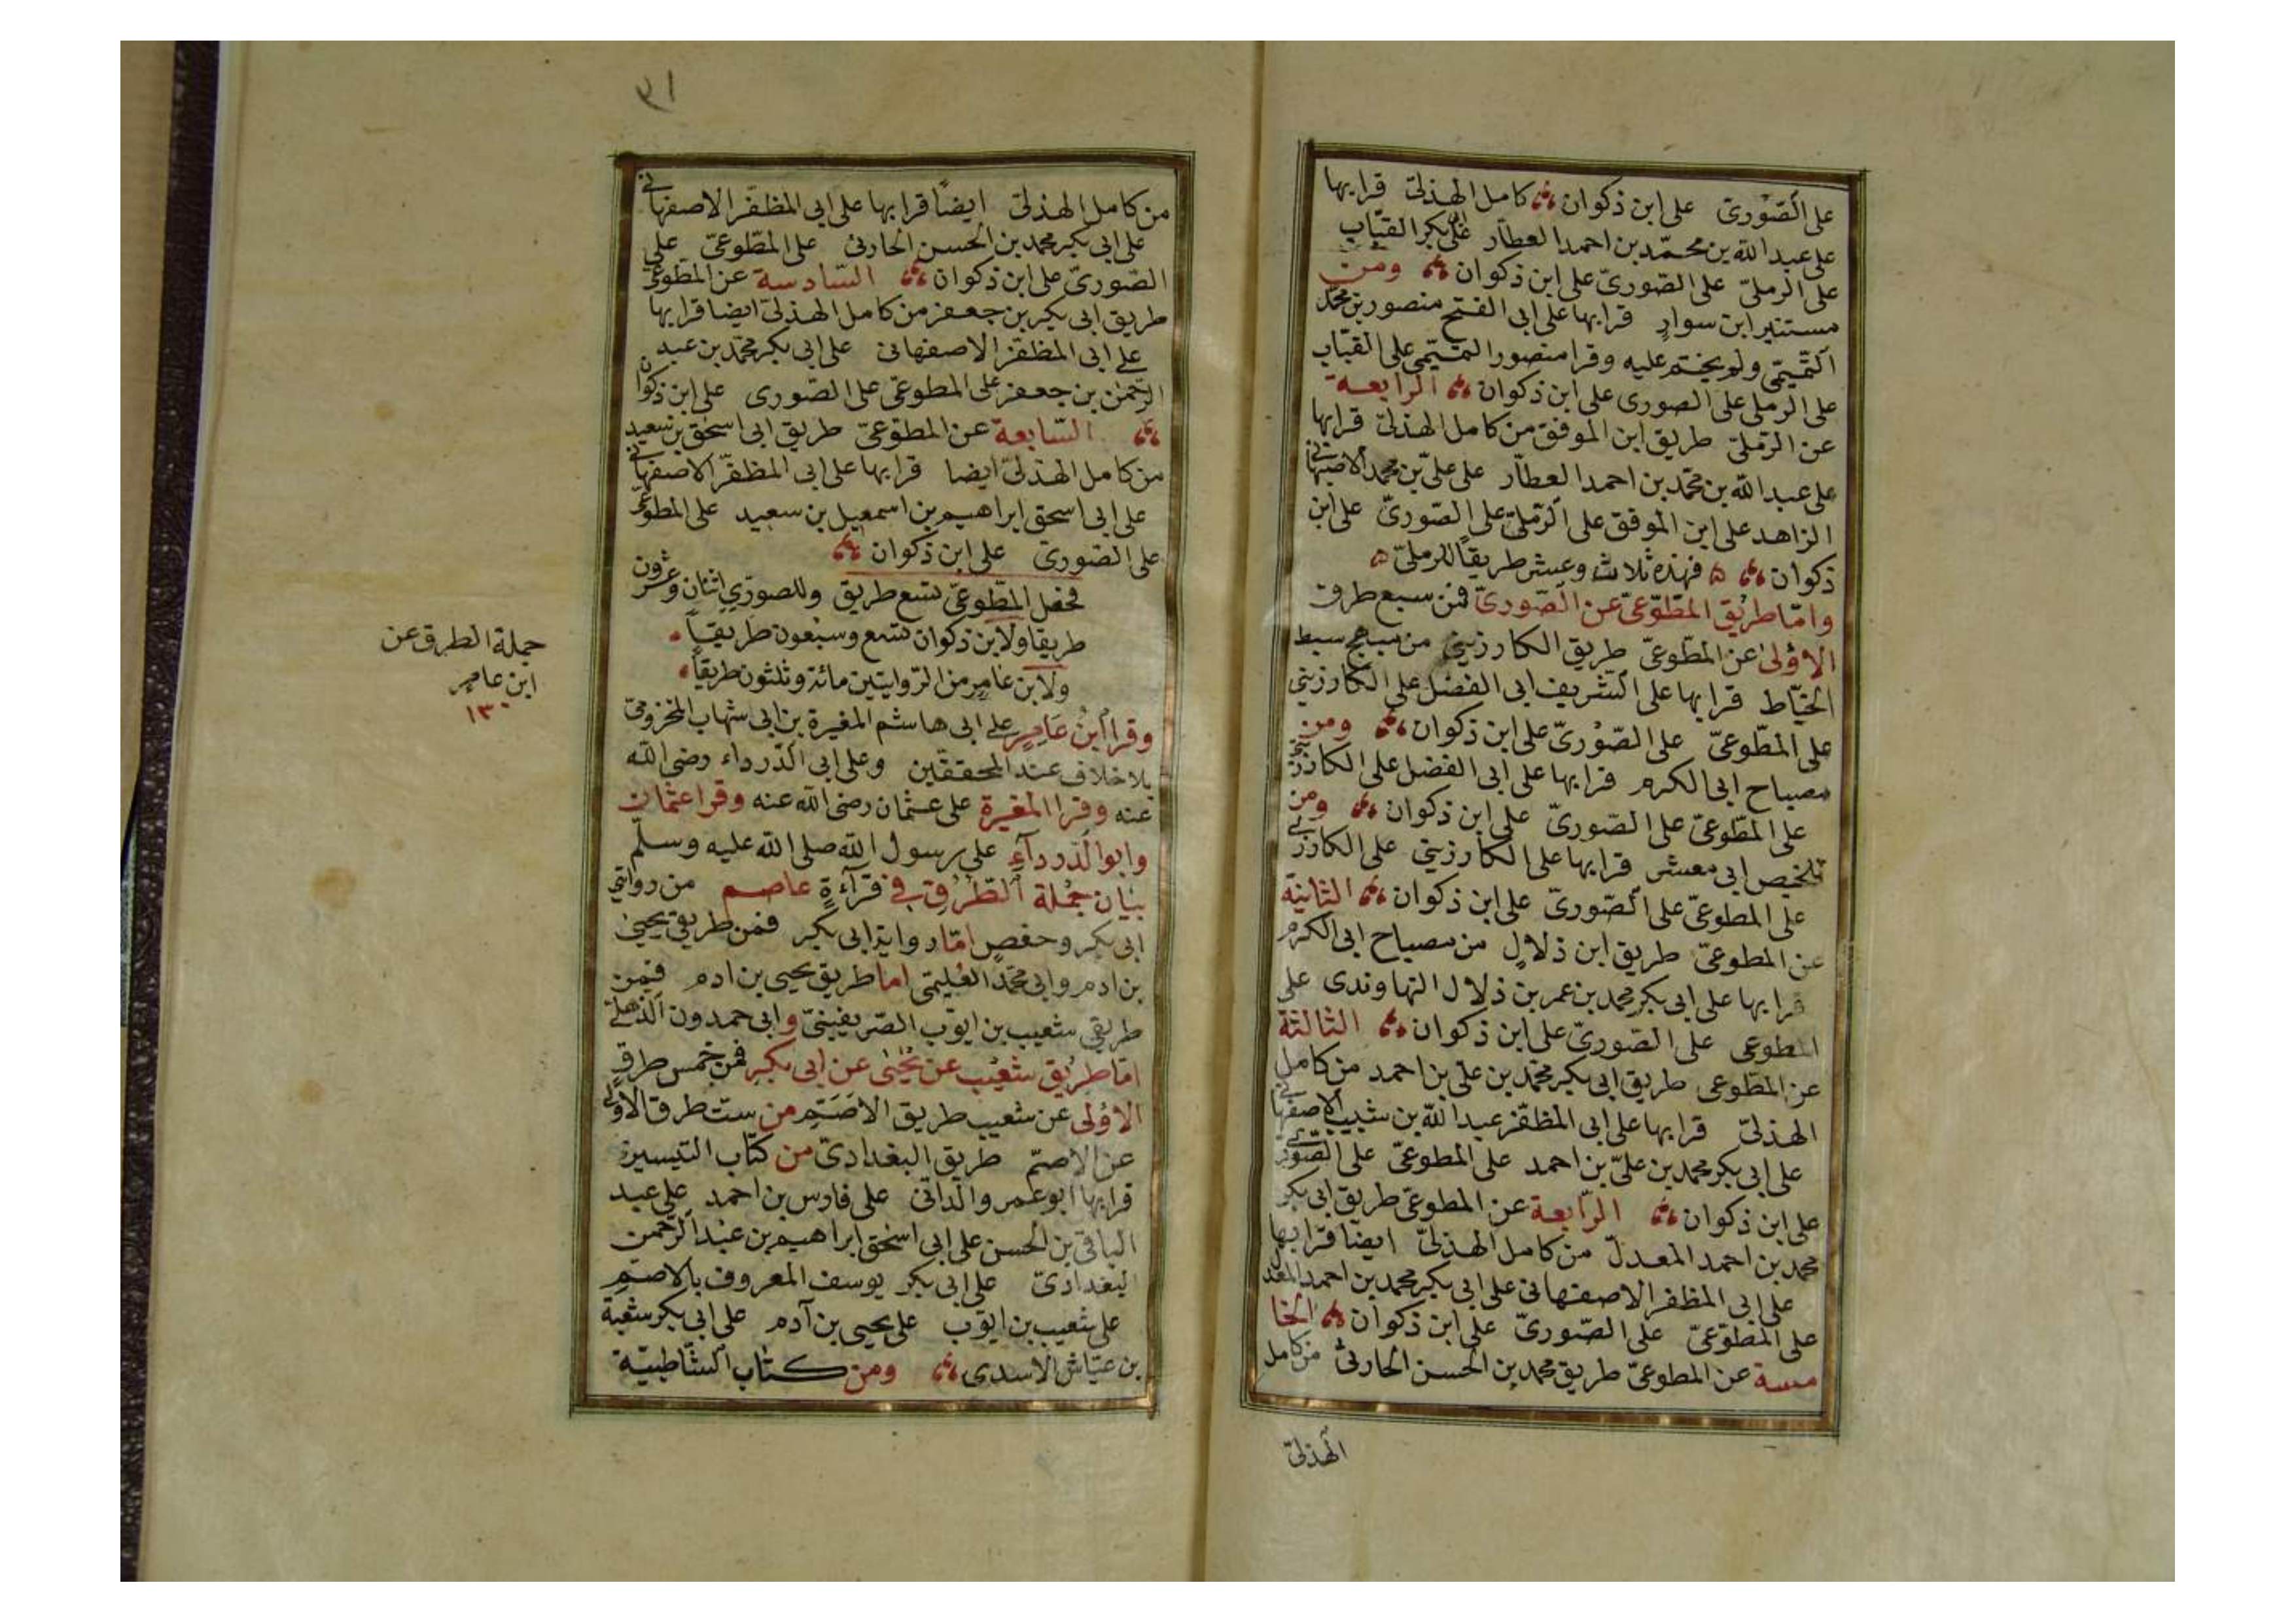 على الصّوريّ على ابن ذكوان كامل الهذليّ قرا بها
على عبد الله بن محمّد بن احمد العطار على بكر القبّاب
على الرمليّ على الصّوريّ على ابن ذكوان ومن
مستنير ابن سوارٍ قرا بها على ابى الفتح منصور بن محمّد
التّميمّي ولم يختم عليه وقرا منصور التميمّي على القبّاب
على الرملى على الصورى على ابن ذكوان الرابعة
عن الرّمليّ طريق ابن الموفق من كامل الهذليّ قرا بها
على عبد الله بن محمّد بن احمد العطّار على علىّ بن محمد الاصبهانى
الزاهد على ابن الموفق على الرّمليّ على الصّوريّ على ابن
ذكوان ه فهذه ثلاث وعشر طريقًا للرمليّ ه
وامّا طريق المطّوّعىّ عن الصّوريّ فمن سبع طرق
الاولى عن المطّوعىّ طريق الكارزينى من مبهج سبط
الخيّاط قرا بها على الشريف ابى الفضل على الكارزينى
على المطّوعىّ على الصّوريّ على ابن ذكوان ومن
مصباح ابى الكرم قرا بها على ابى الفضل على الكارزينى
على المطّوعىّ على الصّوريّ على ابن ذكوان ومن
تلخيص ابى معشر قرا بها على الكارزينى على الكارزينى
على المطوعىّ على الصّوريّ على ابن ذكوان الثانية
عن المطوعىّ طريق ابن ذلالٍ من مصباح ابى الكرم
قرا بها على ابى بكر محمد بن عمر بن ذلال النهاوندى على
المطوعى على الصّوريّ على ابن ذكوان الثالثة
عن المطّوعى طريق ابى بكر محمّد بن على بن احمد من كامل
الهذليّ قرا بها على ابى المظفّر عبد الله بن شبيب الاصفهانى
على ابى بكر محمد بن علىّ بن احمد على المطوعىّ على الصّورى
على ابن ذكوان الرّابعة عن المطوعىّ طريق ابى بكر
محمد بن احمد المعدلّ من كامل الهذليّ ايضًا قرا بها
على ابى المظفر الاصفهانى على ابى بكر محمد بن احمد المعدل
على المطّوّعىّ على الصّوريّ على ابن ذكوان الخا
مسة عن المطوعىّ طريق محمد بن الحسن الحارثىّ من كامل
الهذليّ
٣١
من كامل الهذليّ ايضًا قرا بها على ابى المظفّر الاصفهانى
على ابى بكر محمد بن الحسن الحارثى على المطّوعىّ على
الصّوريّ على ابن ذكوان السّادسة عن المطوعىّ
طريق ابى بكر بن جعفر من كامل الهذليّ ايضا قرا بها
على ابى المظفّر الاصفهانى على ابى بكر محمّد بن عبد
الرّحمٰن بن جعفر على المطوعىّ على الصّورى على ابن ذكوان
السّابعة عن المطوّعىّ طريق ابى اسحٰق بن سعيد
من كامل الهذلىّ ايضا قرا بها على ابى المظفّر الاصفهانى
على ابى اسحق ابراهيم بن اسمعيل بن سعيد على المطوعىّ
على الصّورىّ على ابن ذكوان
فحصل المطّوعىّ تسع طريق وللصورّىِ اثنان وعشرون
طريقا ولابن ذكوان تسع وسبعون طريقًا
ولابن عامرٍ من الرّوايتين مائة وثلثون طريقًا
جملة الطرق عن
ابن عامرٍ
١٣٠
وقرا ابنُ عَامِرٍ على ابى هاشم المغيرة بن ابى شهاب المخزومىّ
بلا خلاف عند المحققين وعلى ابى الدّرداء رضى الله
عنه وقرا المغيرة على عثمان رضى الله عنه وقرا عثمان
وابو الدّرداءِ على رسول الله صلى الله عليه وسلّم
بيَان جُملة الطّرُقِ فى قرآءةِ عاصم من روايتى
ابى بكر وحفصٍ امّا رواية ابى بكر فمن طريقى يحيىٰ
بن ادم وابى محمّد العُليمّى اما طريق يحيى بن ادم فمن
طريقى شعيب بن ايوّب الصّريفينىّ وابى حمدون الذهلى
امّا طريق شعَيْب عن يحْيٰى عن ابى بكرٍ فمن خمس طرقٍ
الاولى عن شعيب طريق الاصَمّ من ستّ طرق الاولى
عن الاصمّ طريق البغدادىّ من كتاب التيسير
قرا بها ابو عمرو الدّانىّ على فارس بن احمد على عبد
الباقى بن الحسن على ابى اسحٰق ابراهيم بن عبد الرّحمن
البغدادىّ على ابى بكر يوسف المعروف بالاصمّ
على شعيب بن ايوّب على يحيى بن آدم على ابى بكر شعبة
بن عيّاش الاسدى ومن كتاب الشّاطبيّة